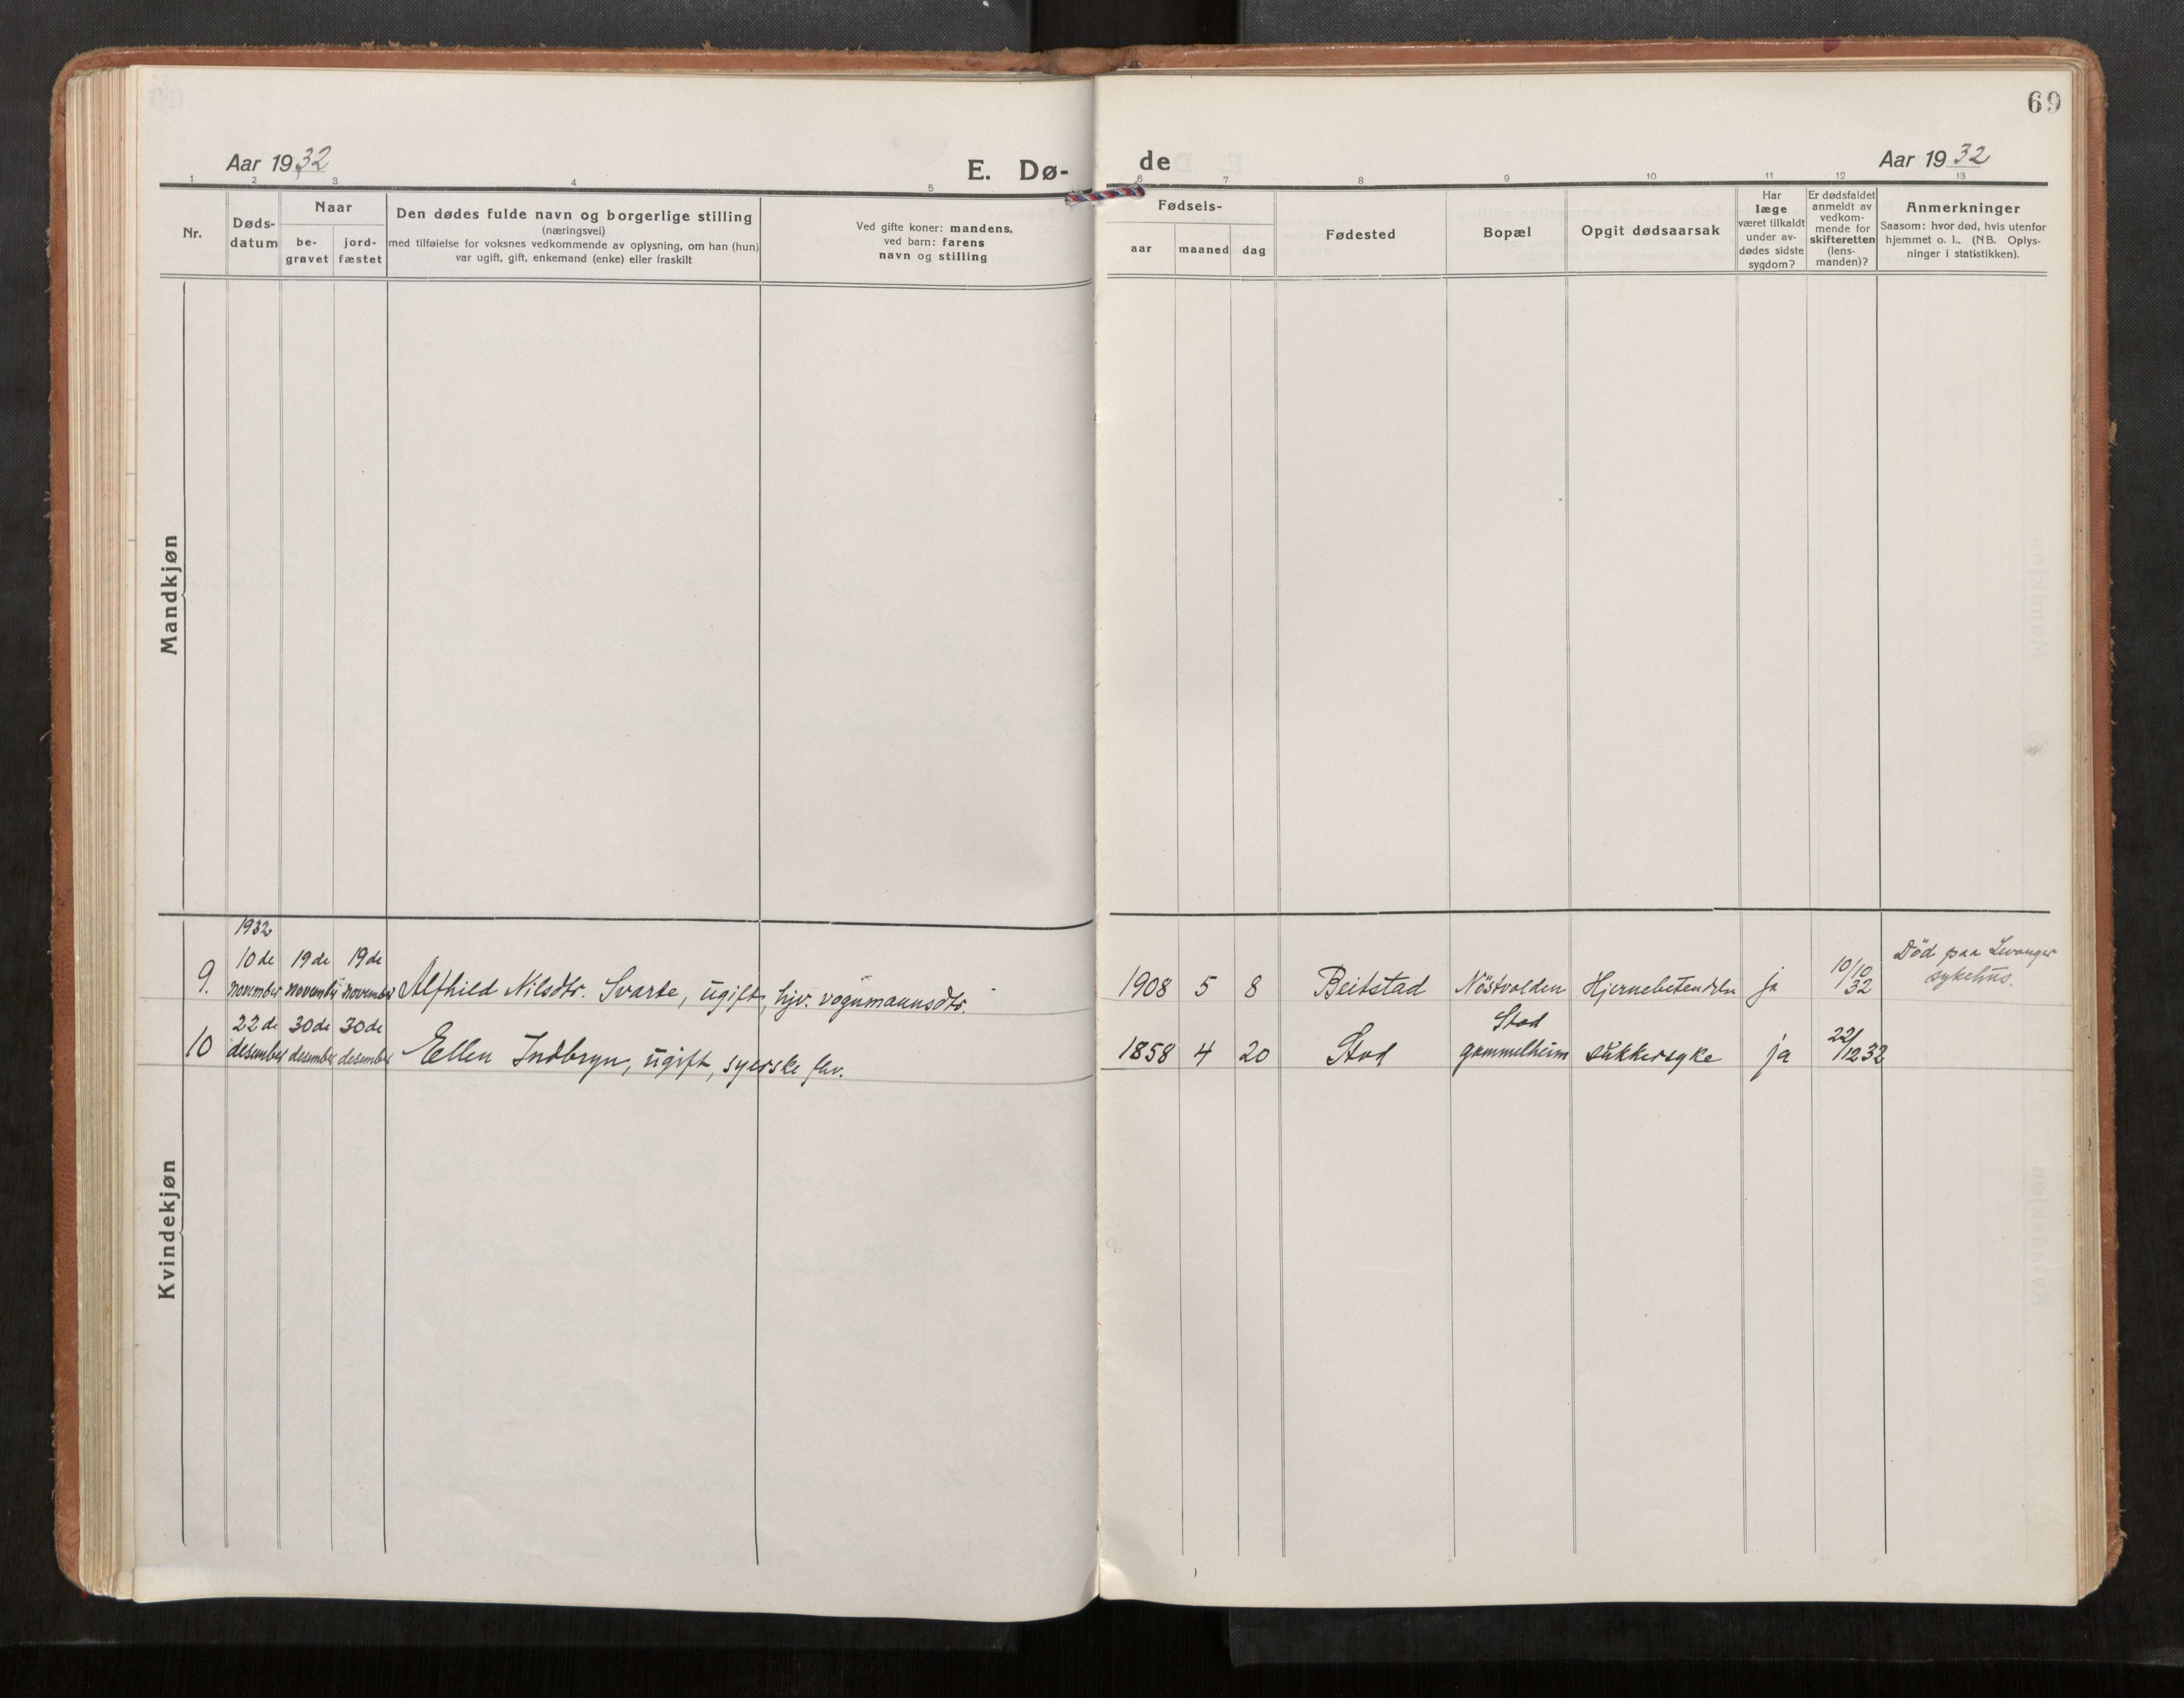 69
Aar 1932
E. Dø-
de
Aar 1932
1 2 3 4 5 6 7 8 9 10 11 12 13
Nr.
Døds-
datum
Naar
be-
gravet
jord-
fæstet
Den dødes fulde navn og borgerlige stilling
(næringsvei)
med tilføielse for voksnes vedkommende av oplysning, om han (hun)
var ugift, gift, enkemand (enke) eller fraskilt
Ved gifte koner: mandens,
ved barn: farens
navn og stilling
Fødsels-
aar maaned dag
Fødested
Bopæl
Opgit dødsaarsak
Har
læge
været tilkaldt
under av-
dødes sidste
sygdom?
Er dødsfaldet
anmeldt av
vedkom-
mende for
skifteretten
(lens-
manden)?
Anmerkninger
Saasom: hvor død, hvis utenfor
hjemmet o. l.. (NB. Oplys-
ninger i statistikken).
Mandkjøn
Kvindekjøn
1932
10de 19de 19de
9. november november november Alfhild Nilsdtr. Svarte, ugift, hjv. vognmannsdtr. 1908 5 8 Beitstad Nöstvolden Hjernebetendelse ja 10/10 32 Död paa Levanger
sykehus.
22de 30de 30de
10 desember desember desember Ellen Indbryn, ugift, syerske fhv. 1858 4 20 Stod Stod
gammelheim sukkersyke ja 22/12 32